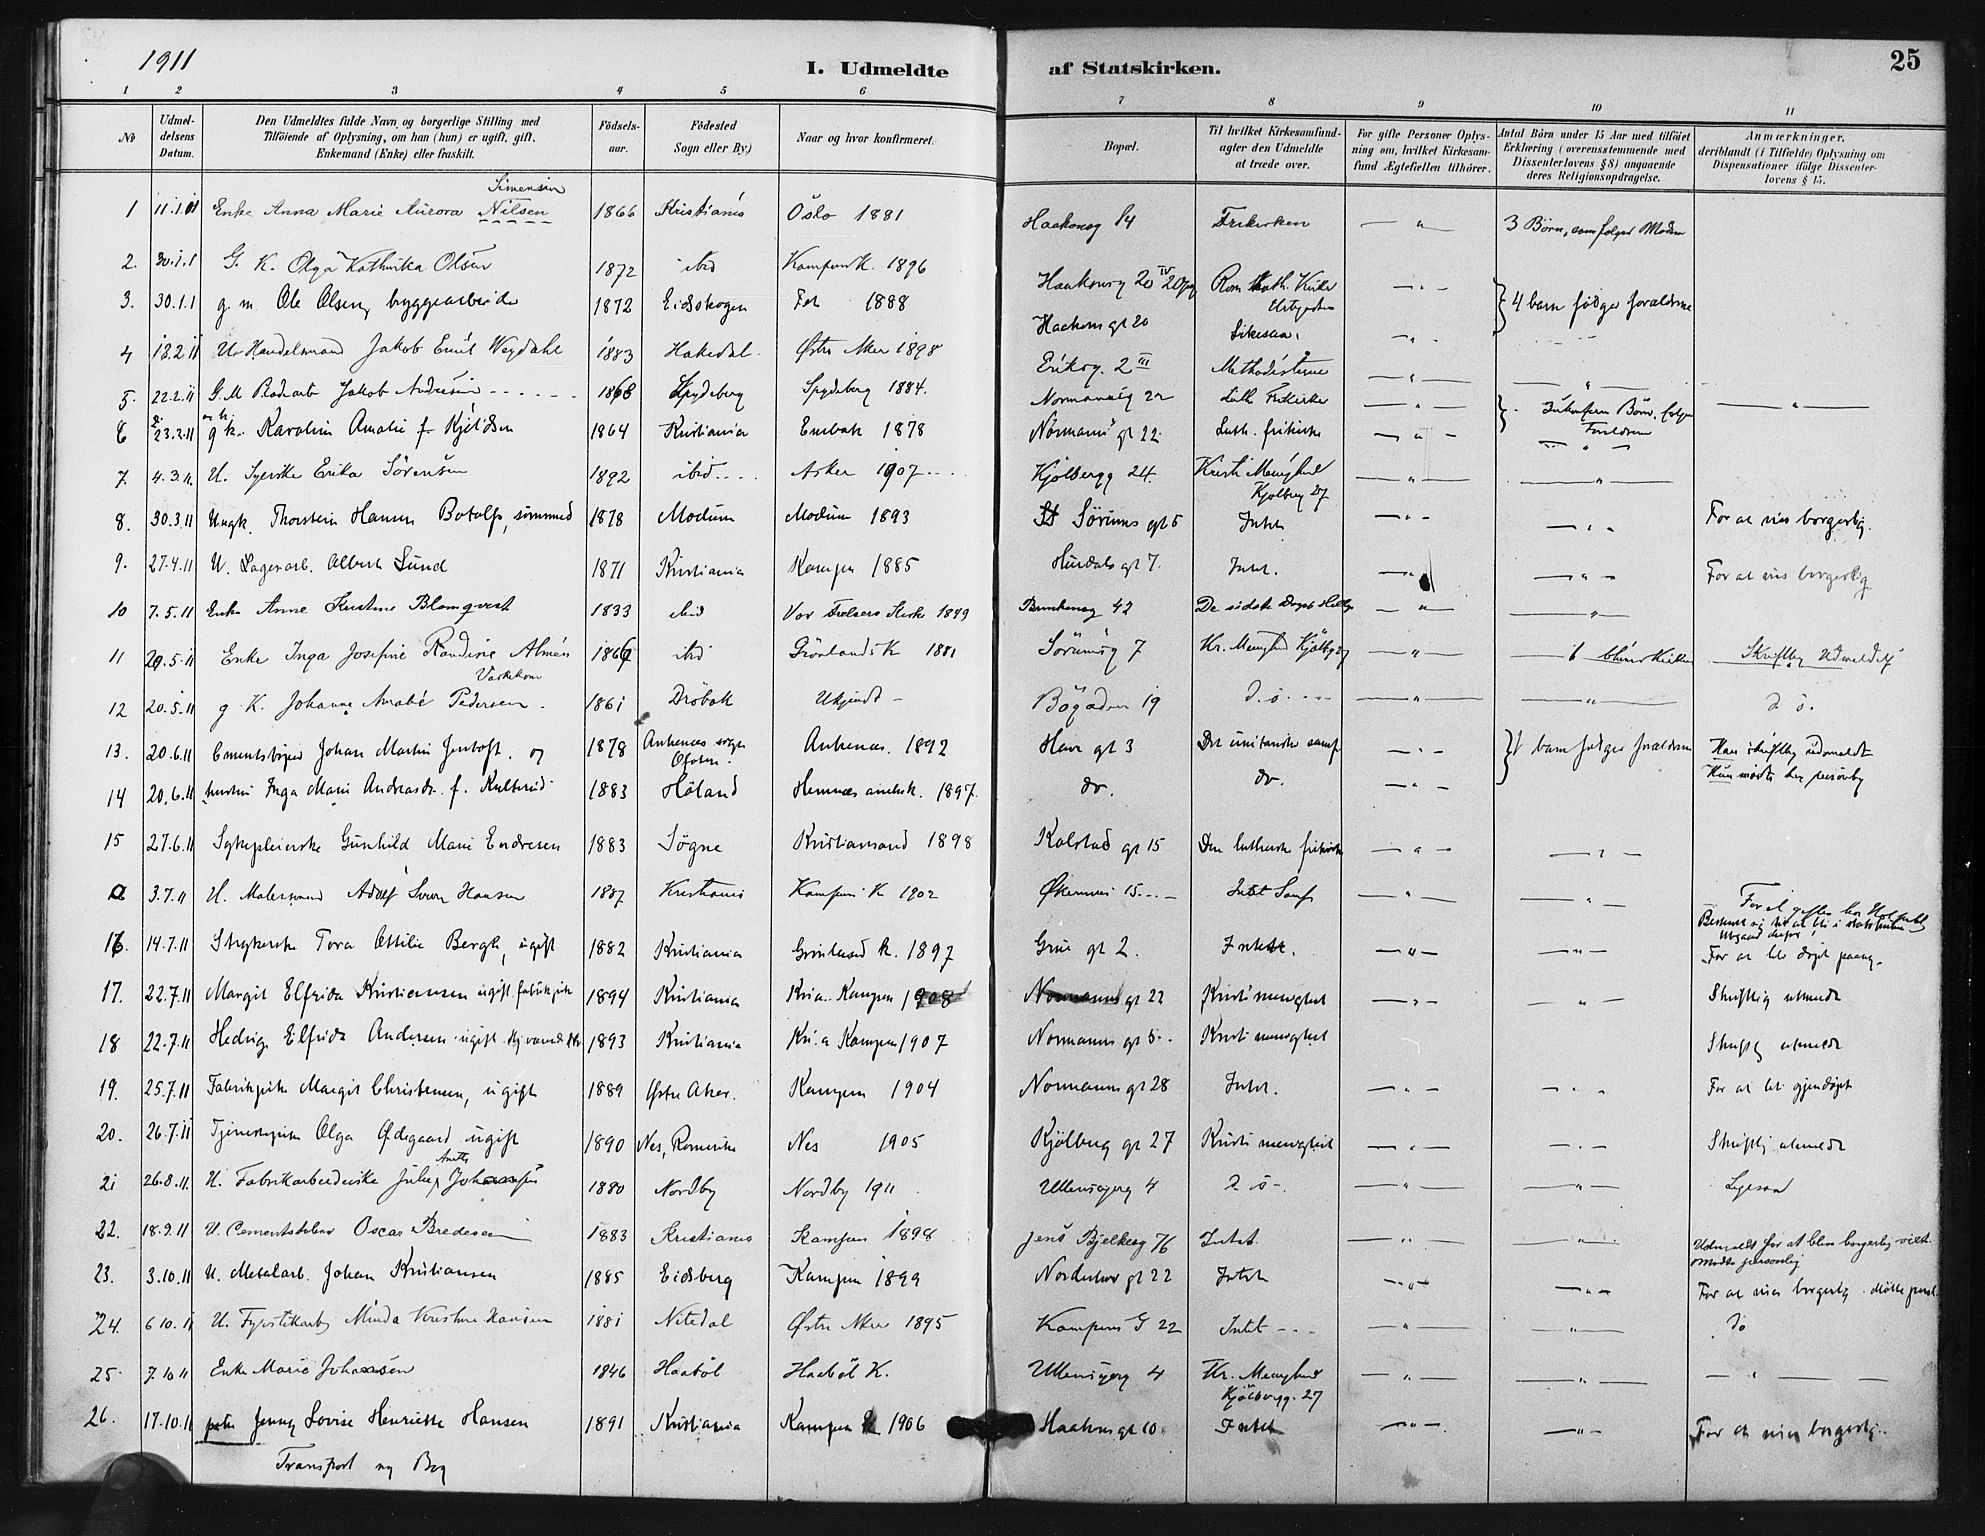 1911
I. Udmeldte af Statskirken.
25
1 2 3 4 5 6 7 8 9 10 11
No
Udmeldelsens Datum.
Den Udmeldtes fulde Navn og borgerlige Stilling med
Tilføiende af Oplysning, om han (hun) er ugift, gift,
Enkemand (Enke) eller fraskilt.
Fødselsaar.
Fødested
Sogn eller By.)
Naar og hvor konfirmeret.
Bopæl.
Til hvilket Kirkesamfund
agter den Udmeldte
at træde over.
For gifte Personer Oplysning om, hvilket Kirkesamfund Ægtefællen tilhører.
Antal Börn under 15 Aar med tilføiet
Erklæring (overensstemmende med
Dissenterlovens § 8) angaaende
deres Religionsopdragelse.
Anmærkninger,
deriblandt (i Tilfælde) Oplysning om
Dispensationer ifølge Dissenterlovens § 15.
Simensen
1 11.1.01 Enke Anna Marie Aurora Nilsen 1866 Kristiania Oslo 1881 Haakonsg 14 Frikirken — " — 3 Børn, som følger Moderen
2. 30.1.1 G. K. Olga Kathinka Olsen 1872 ibid Kampens K. 1896 Haakonsg 20 IV Rom. Kath. Kirke — " —
3. 30.1.1 g. m. Ole Olsen, byggearbeider 1872 Eidskogen Fet 1888 Haakons gt 20 — " — 4 barn følger forældrene
4 18.2.11 U. Handelsmand Jakob Emil Wegdahl 1883 Hakedal Østre Aker 1898 Eriksg. 2 III Methodisterne — " — — " —
5. 22.2.11 G. M Jakob Andersen - - - - 1868 Spydeberg Spydeberg 1884. Normannsg 22 Luth. Frikirke — " — — " —
6 23.2.11 g k. Karoline Amalie f. Kjeldsen 1864 Kristiania Enebak 1878 Normanns gt 22. Luth. frikirke — " — Forældrene — " —
7. 4.3.11. U. Syerske Erika Sörensen 1892 ibid - - - Asker 1907 - - Kjölbergg 24. Kristi Menighed — " — — " —
Kjølberg 27
8. 30.3.11 Ungk. Thorstein Hansen Botolfs, sømmand 1878 Modum Modum 1893 Sörums gt 5 Intet — " — — " — For at vies borgerlig.
9. 27.4.11 U. Lagerarb. Albert Lund 1871 Kristiania Kampen 1885 Hurdals gt 7. Intet. — " — — " — For at vies borgerlig
10 7.5.11 Enke Anne Kirstine Blomqvist 1833 ibid Vor Frelsers Kirke 1849 42 De sidste Dages Hellige — " — — " —
11 20.5.11 Enke Inga Josefine Randine Almén 1866 ibid Grönlands K 1881 Sörumsg 7 Kr. Menighed Kjölbg 27 — " — Skriftlig Udmeldelse
Vaskekone
12 20.5.11 g. K. Johanne Amalie Pedersen 1861 Dröbak Ukjendt - Bögaden 19 d. o. - - — " — — " — d. o.
13. 20.6.11 Cementstöper Johan Martin Jentoft. og 1878 Ankenes sogn Ofoten. Ankenes. 1892 Havre gt 3 Det unitariske samf. — " — 1 barn følger forældrene Han skriftlig udmeldt
14 20.6.11 hustru Inga Marie Andreasdr. f. Kulterud 1883 Höland Hemnes annexk. 1897. do. do. — " — Hun mödte her personlig
15 27.6.11 Sykepleierske Gunhild Marie Endresen 1883 Sögne Kristiansand 1898 Kalstad gt 15 Den lutherske frikirke — " — — " —
a 3.7.11 U. Malersvend Adolf Hansen 1887 Kristiania Kampens K 1902 Økernvei 15 - - - Intet Samf — " — — " — For at giftes
16. 14.7.11 Strykerske Tora Ottilie Bergh, ugift 1882 Kristiania Grönland k. 1897 Grue gt 2. Intet. — " — — " — For at bli döpt paany.
17. 22.7.11 Margit Elfrida Kristiansen ugift fabrikpike 1894 Kristiania Kria. Kampen 1908 Normanns gt 22 Kristi menighet — " — — " — Skriftlig utmeldt
18 22.7.11 Hedvig Elfrida Andersen ugift 1893 Kristiania Kri.a Kampen 1907 Normanns gt 5. Kristi menighet Skriftlig utmeldt
19. 25.7.11 Fabrikpike Margit Christensen, ugift 1889 Østre Aker. Kampen 1904 Normanns gt 28 Intet. — " — — " — For at bli gjendöpt
20. 26.7.11 Tjenestepike Olga Ødegaard ugift 1890 Nes, Romerike Nes 1905 Kjölberg gt 27 Kristi menighet — " — — " — Skriftlig utmeldt
21 26.8.11. U. Fabrikarbeiderske Julie Anette Johansen 1880 Nordby Nordby 1911 Ullensgerg 4 d. o. — " — — " — Ligesaa
22. 18.9.11 U. Cementstöber Oscar Bredesen 1883 Kristiania Kampen 1898 Jens Bjelkesg 76 Intet. — " — — " — Udmeldt for at blive borgerlig viet. mödte personlig
23. 3.10.11 U. Metalarb. Johan Kristiansen 1885 Eidsberg Kampen 1899 Norderhov gt 22 Intet — " — — " — For at vies borgerlig. Mötte pers.
24. 6 10.11 U. Fyrstikarb. Minda Kristine Hansen 1881 Nitedal Østre Aker 1895 Kampens G 22 Intet - - — " — — " — Do
25 7.10 11 Enke Marie Johansen 1846 Haaböl Haaböl K. Ullensgerg 4 Kr. Menighed — " — — " — — " —
Kjölbergg. 27
26. 17.10.11 pike Jenny Lovise Henriette Hansen 1891 Kristiania Kampen 1906 Haakons gt 10. Intet — " — — " — For at vies borgerlig.
Transport ny Bog